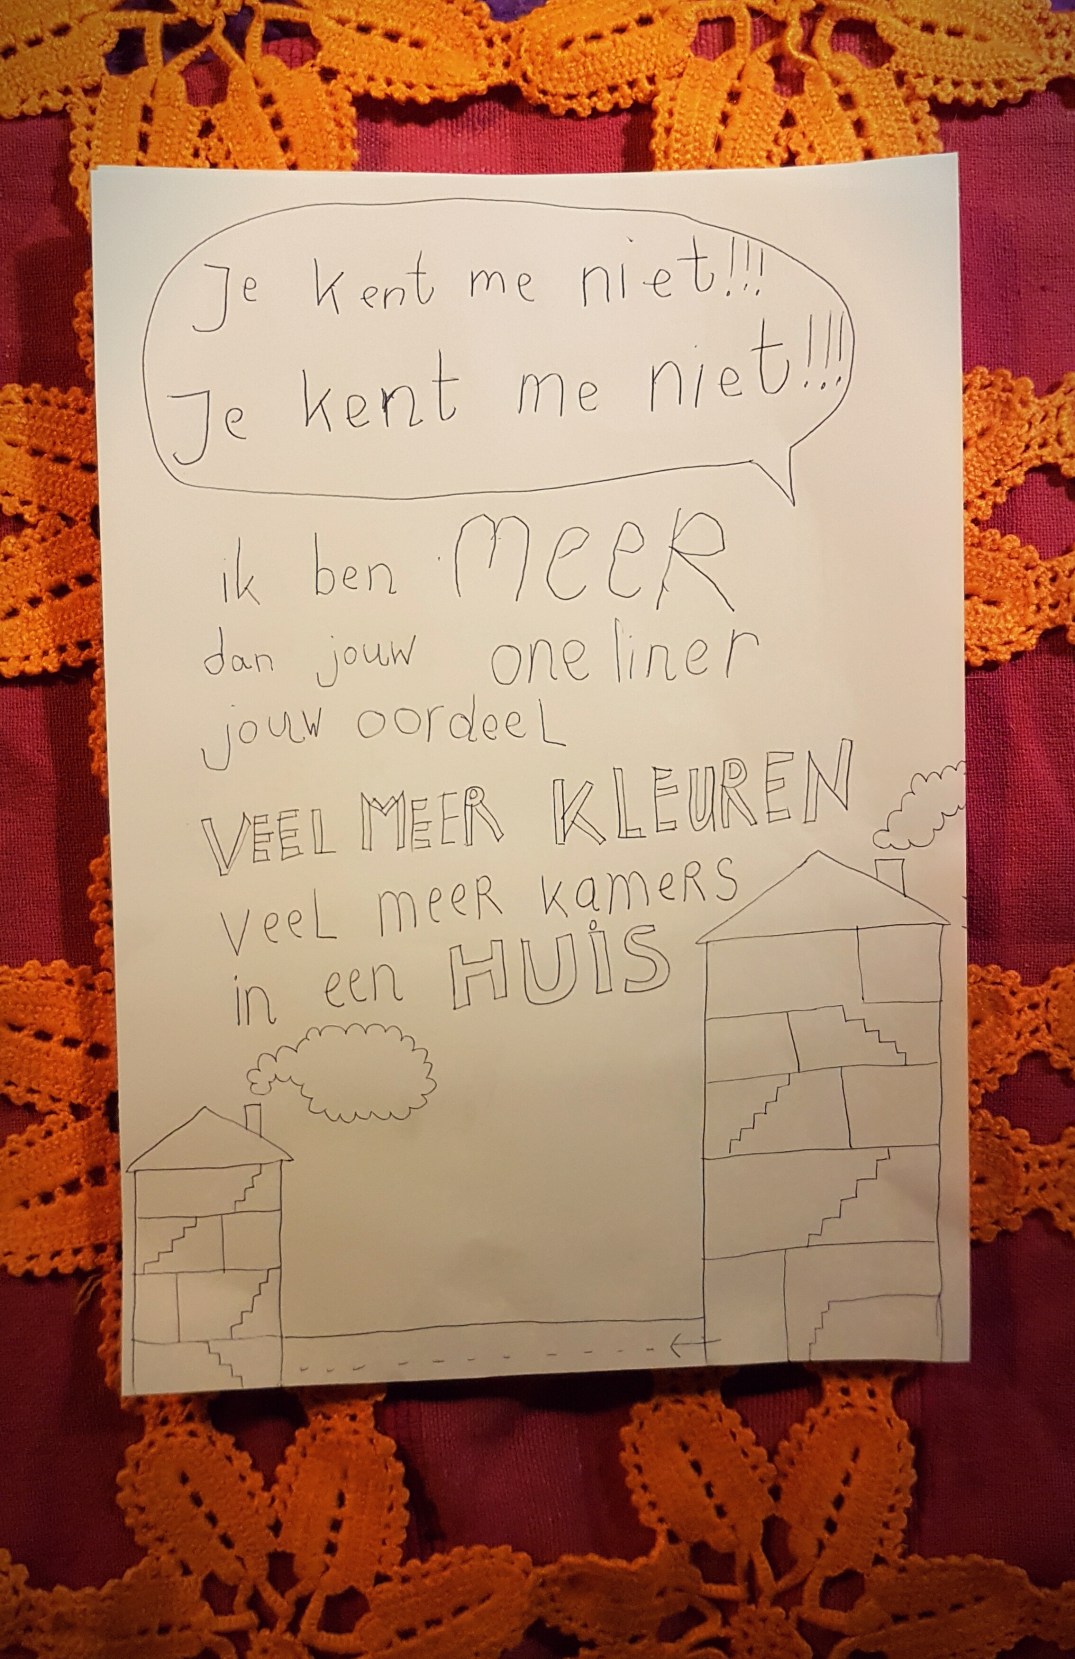 Je kent me niet!!!
Je kent me niet!!!
ik ben MeeR
dan jouw one liner
jouw oordeeL
VEEL MEER KLEUREN
veeL meeR kameRs
in een HUiS